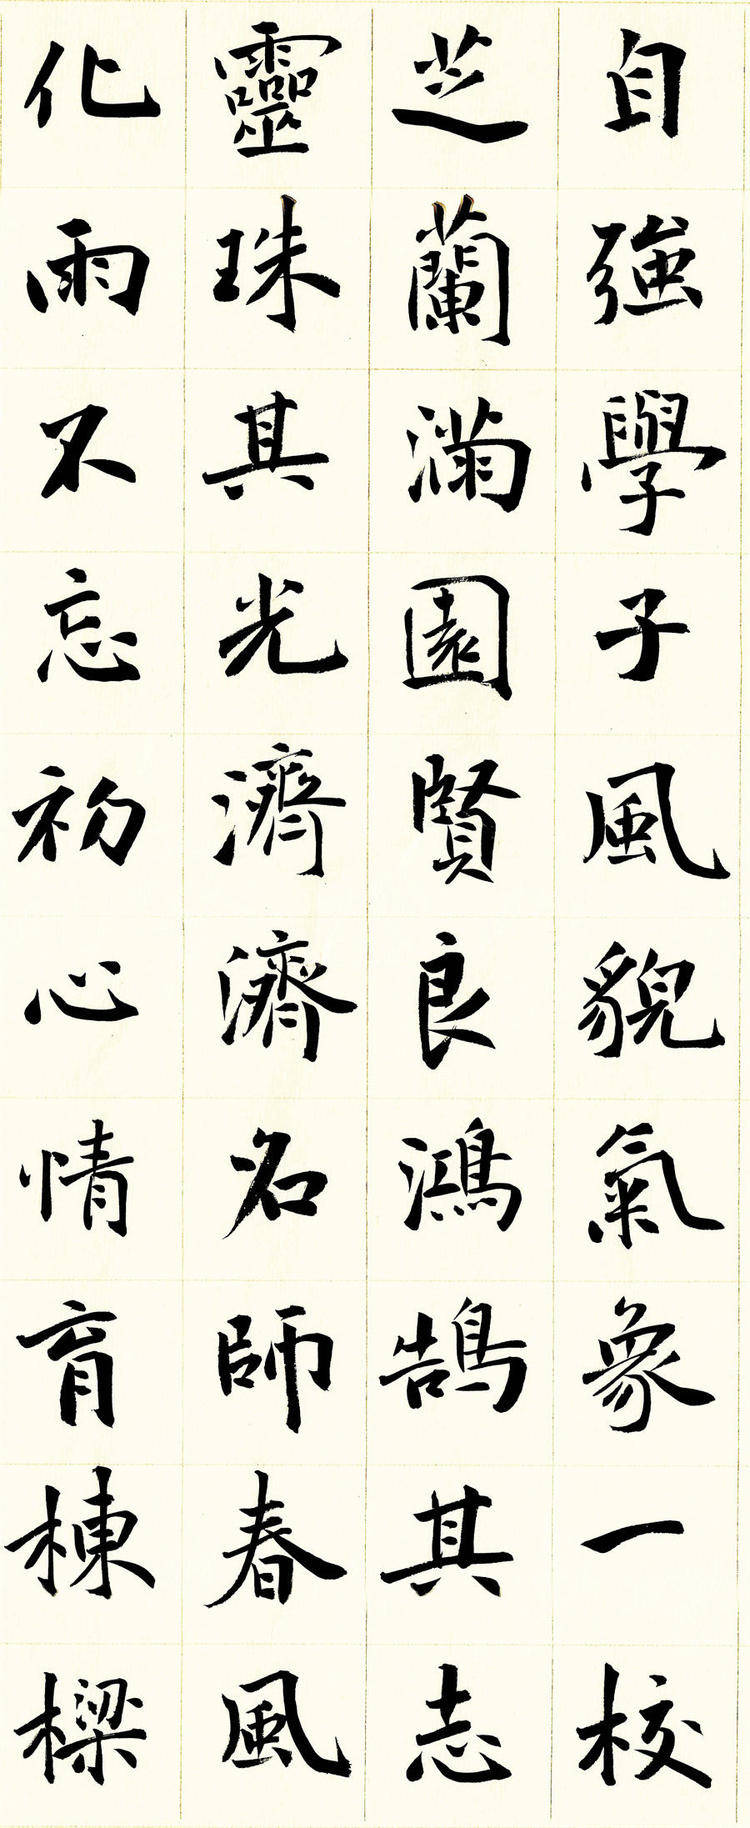 自強學子風貌氣象一校
芝蘭滿園賢良鴻鵠其志
靈珠其光濟濟名師春風
化雨不忘初心情育棟樑